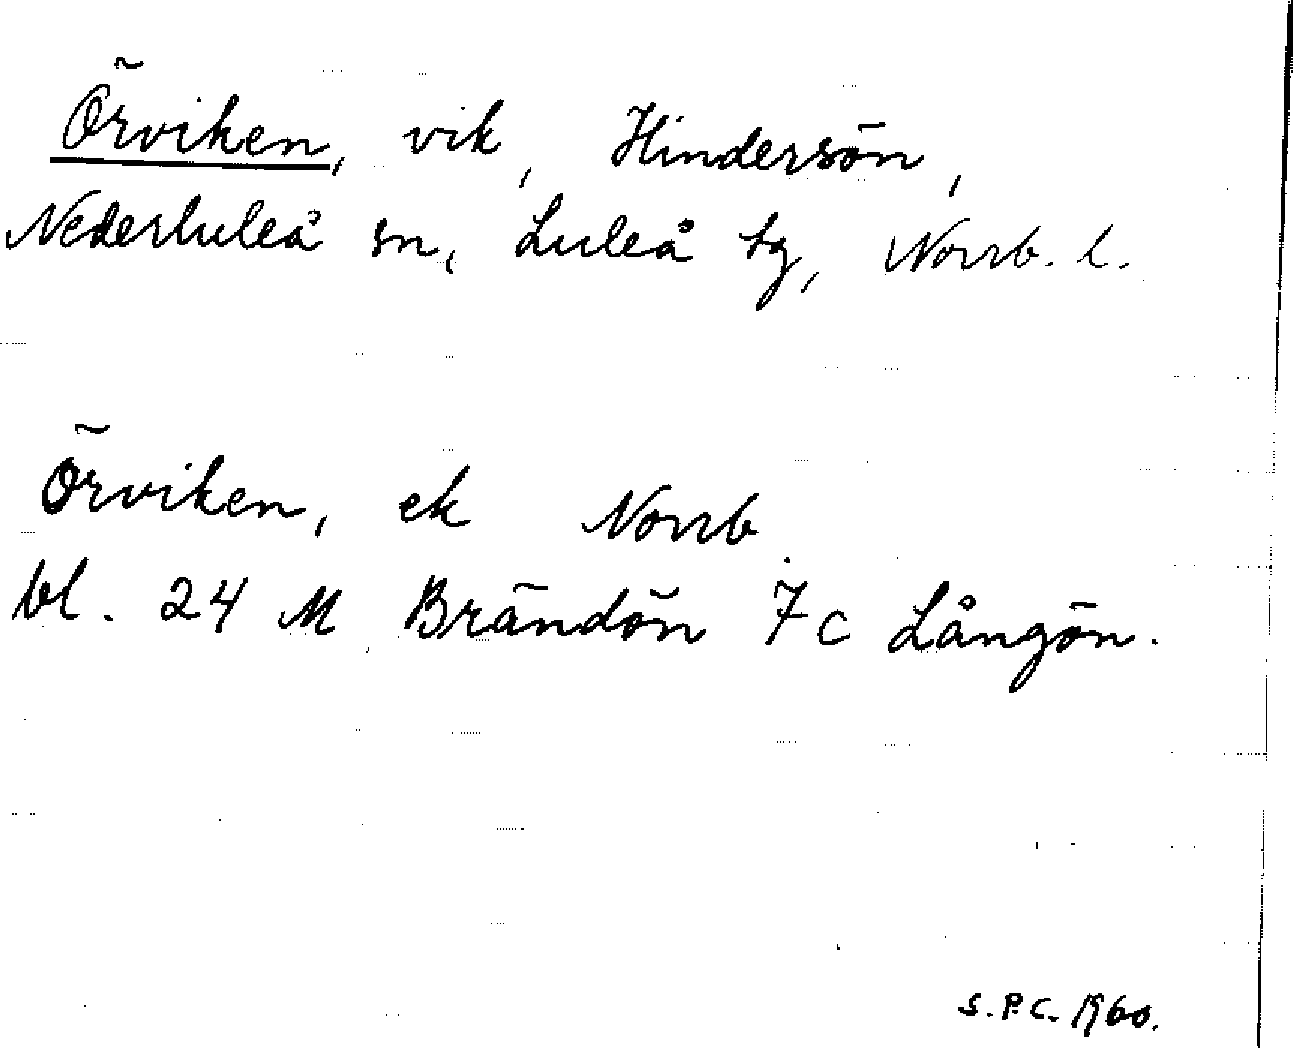 Örviken, vik, Hindersön,
Nederluleå sn, Luleå tg, Norrb. l.
Örviken, ek Norrb.
bl. 24 M Brändön 7 c Långön.
S.P.C. 1960.